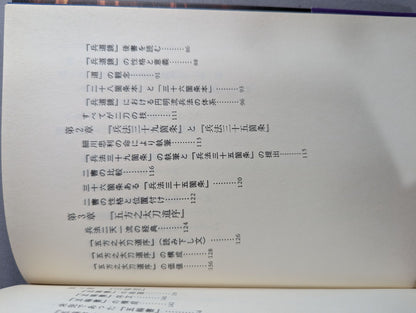 『兵道鏡』後書を読む……86
『兵道鏡』の性格と意義……88
「道」の観念……91
「二十八箇条本」と「三十六箇条本」……93
『兵道鏡』における円明流兵法の体系……96
すべてが二刀の技……111
第2章 『兵法三十九箇条』と『兵法三十五箇条』
細川忠利の命により執筆……115
『兵法三十九箇条』の執筆と『兵法三十五箇条』の提出……115
二書の比較……116
三十六箇条ある『兵法三十五箇条』……120
二書の性格と位置付け……122
第3章 『五方之太刀道序』
兵法二天一流の経典……124
『五方之太刀道序』(読み下し文)……126
『五方之太刀道序』の構成……128
『五方之太刀道序』の価値……136